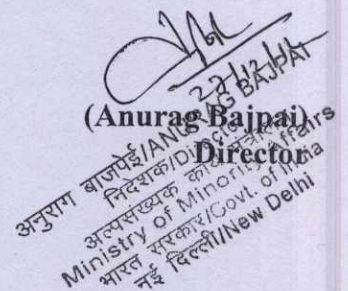 (Anurag Bajpai)
Director
अनुराग बाजपेई/ANURAG BAJPAI
निदेशक/Director
अल्पसंख्यक कार्य मंत्रालय
Ministry of Minority Affairs
भारत सरकार/Govt. of India
नई दिल्ली/New Delhi